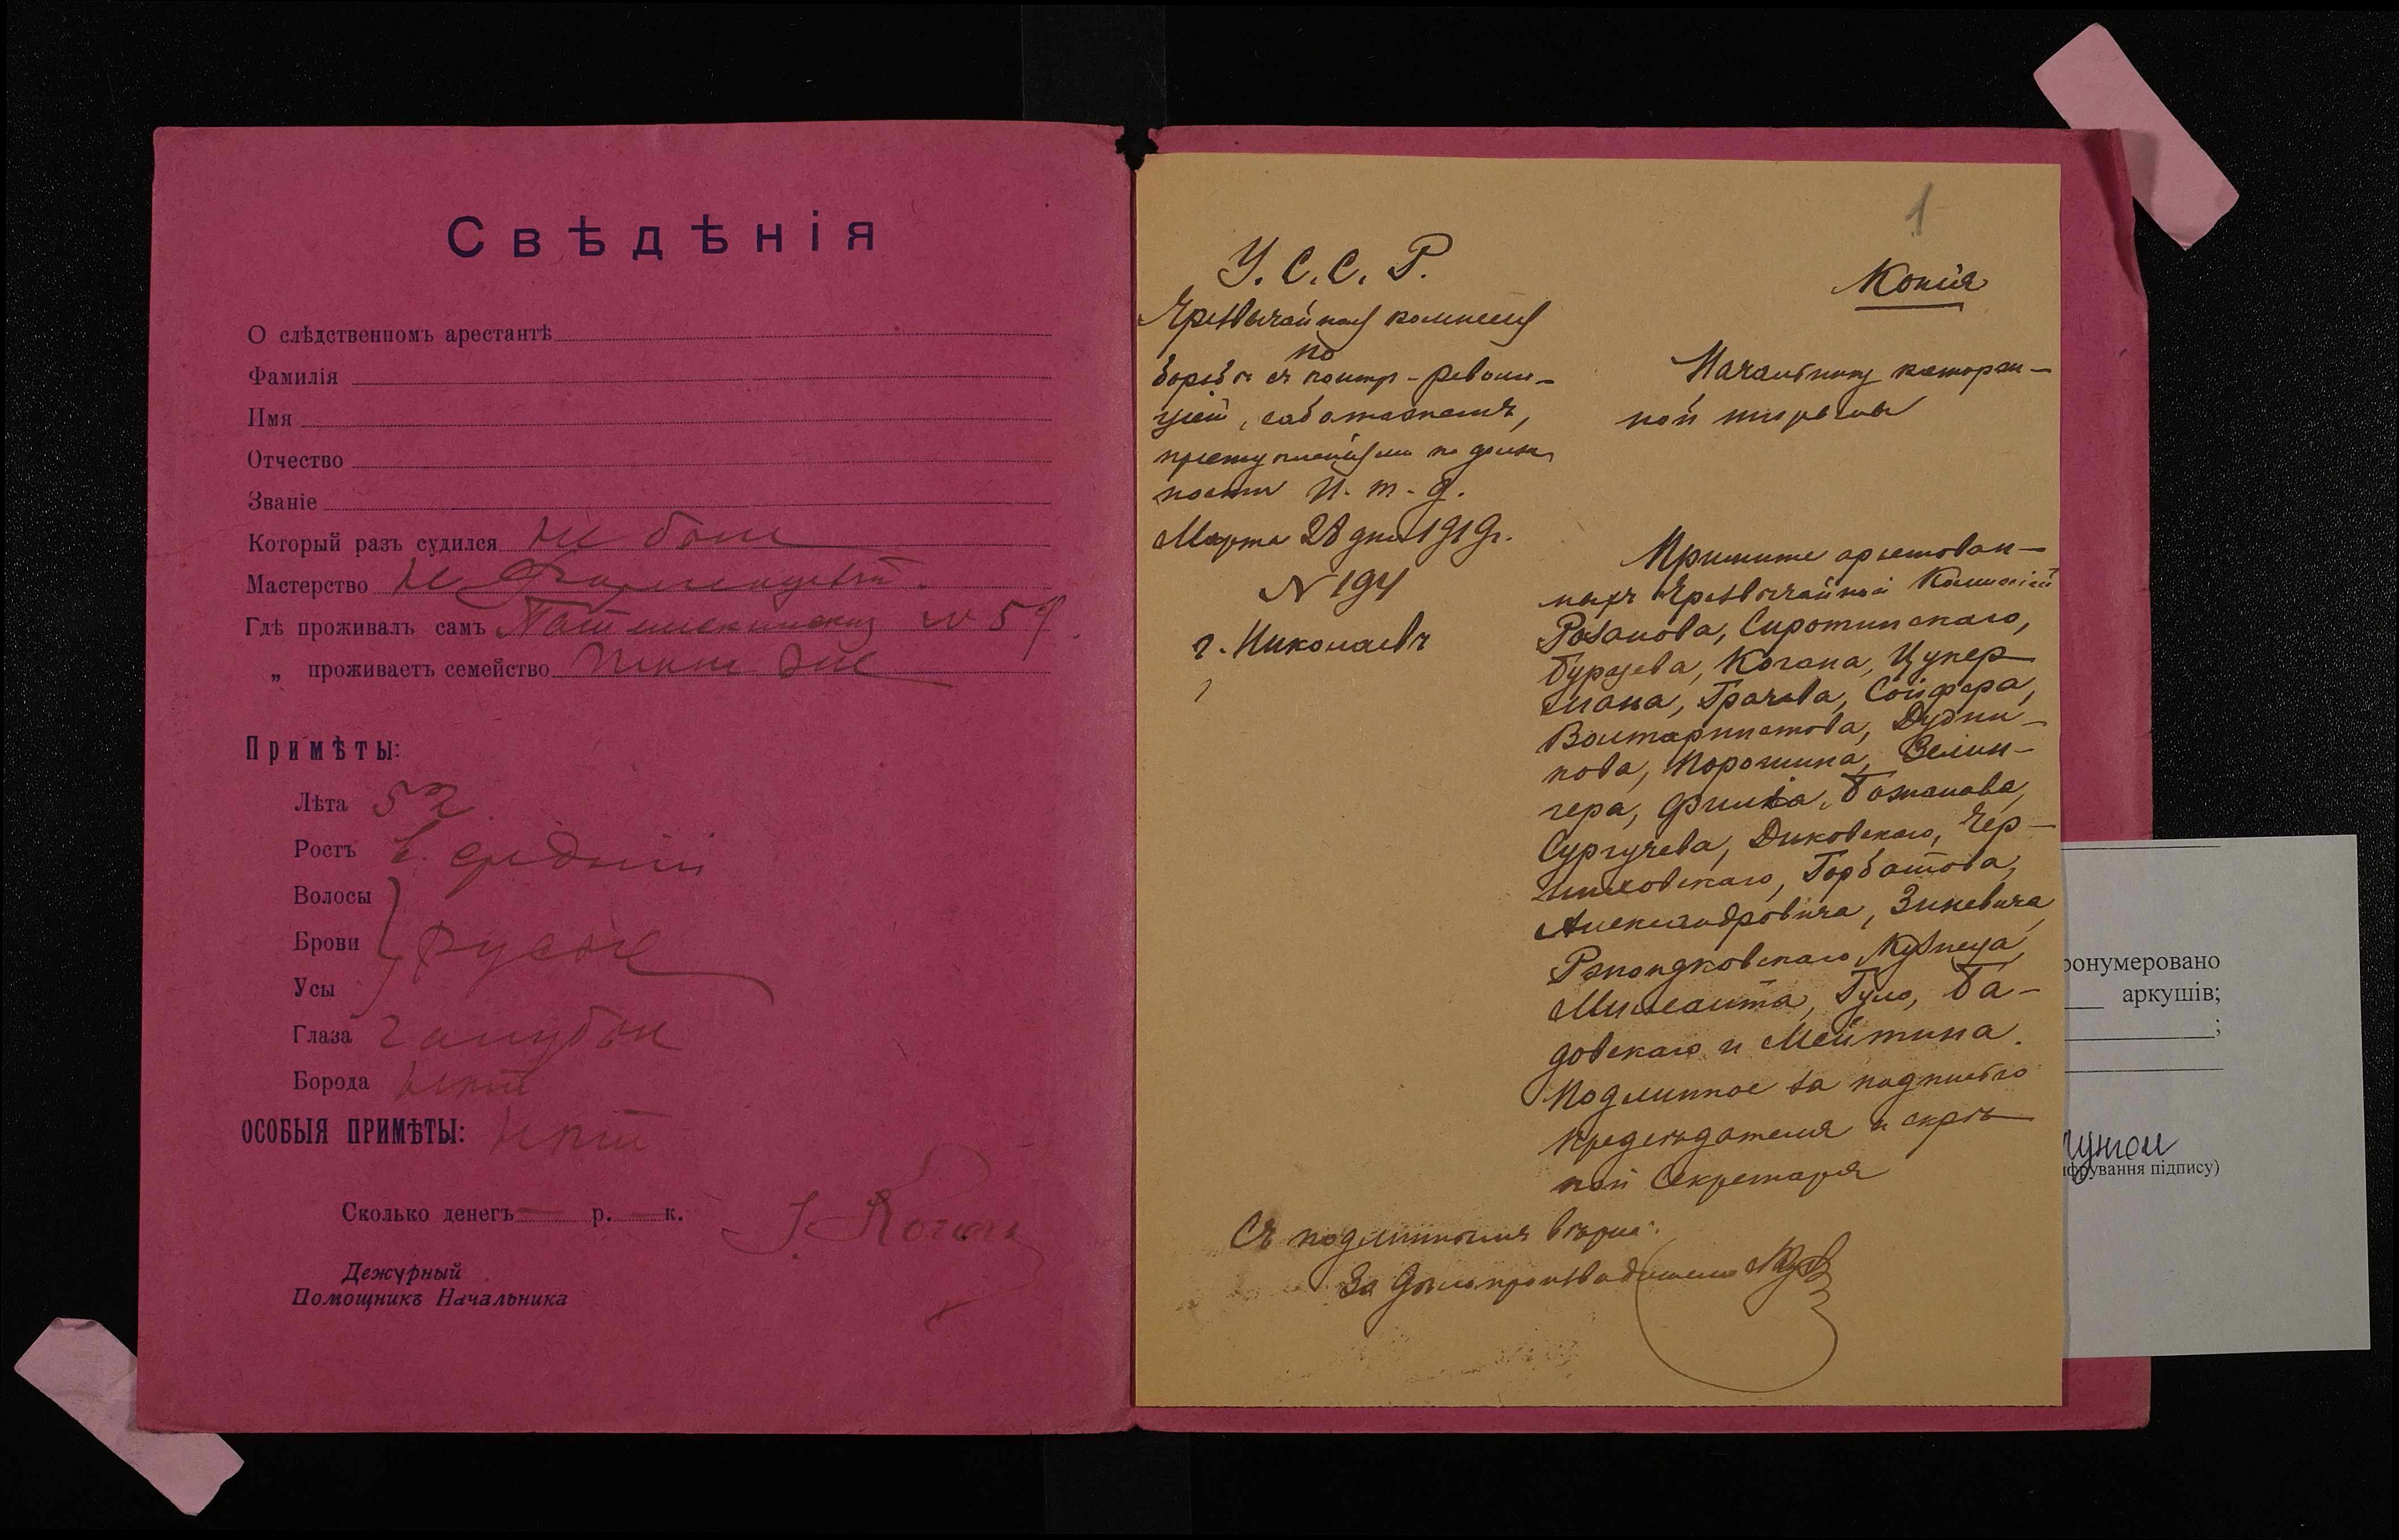 Свѣдѣнія
О слѣдственномъ арестантѣ
Фамилія
Имя
Отчество
Званіе
Который разъ судился не был
Мастерство не
Гдѣ проживалъ самъ № 59.
„ проживаетъ семейство тамъ же
Примѣты:
Лѣта 52
Ростъ в. средній
Волосы
Брови русые
Усы
Глаза галубые
Борода нѣт
ОСОБЫЯ ПРИМѢТЫ: нѣт
Сколько денегъ — р. — к.
Дежурный
Помощникъ Начальника
1
У. С. С. Р.
Чрезвычайная комиссия
по
борьбѣ съ контр-револю-
ціей, саботажемъ,
преступленіями по долж
ности и. т. д.
Марта 28 дня 1919 г.
N 194
г. Николаевъ
Копія
Начальнику каторж-
ной тюрьмы
Примите арестован-
ныхъ Чрезвычайной Комиссіей
Розанова, Сиротинскаго,
Бурцева, Когана, Цукер-
мана, Грачева, Сойфера,
Вольтарнистова, Дудни-
кова, Порошина, Зелин-
гера, Финка, Бажанова,
Сургучева, Диковскаго, Чер-
няховскаго, Горбатова,
Александровича, Зинкевича,
Кузнеца,
Гуло, Ба-
довскаго и Мейтина.
Подлинное за подписью
председателя и скрѣ-
пой Секретаря
Съ подлиннымъ вѣрно:
За Дѣлопроизводителя
ронумеровано
аркушів;
;
фрування підпису)